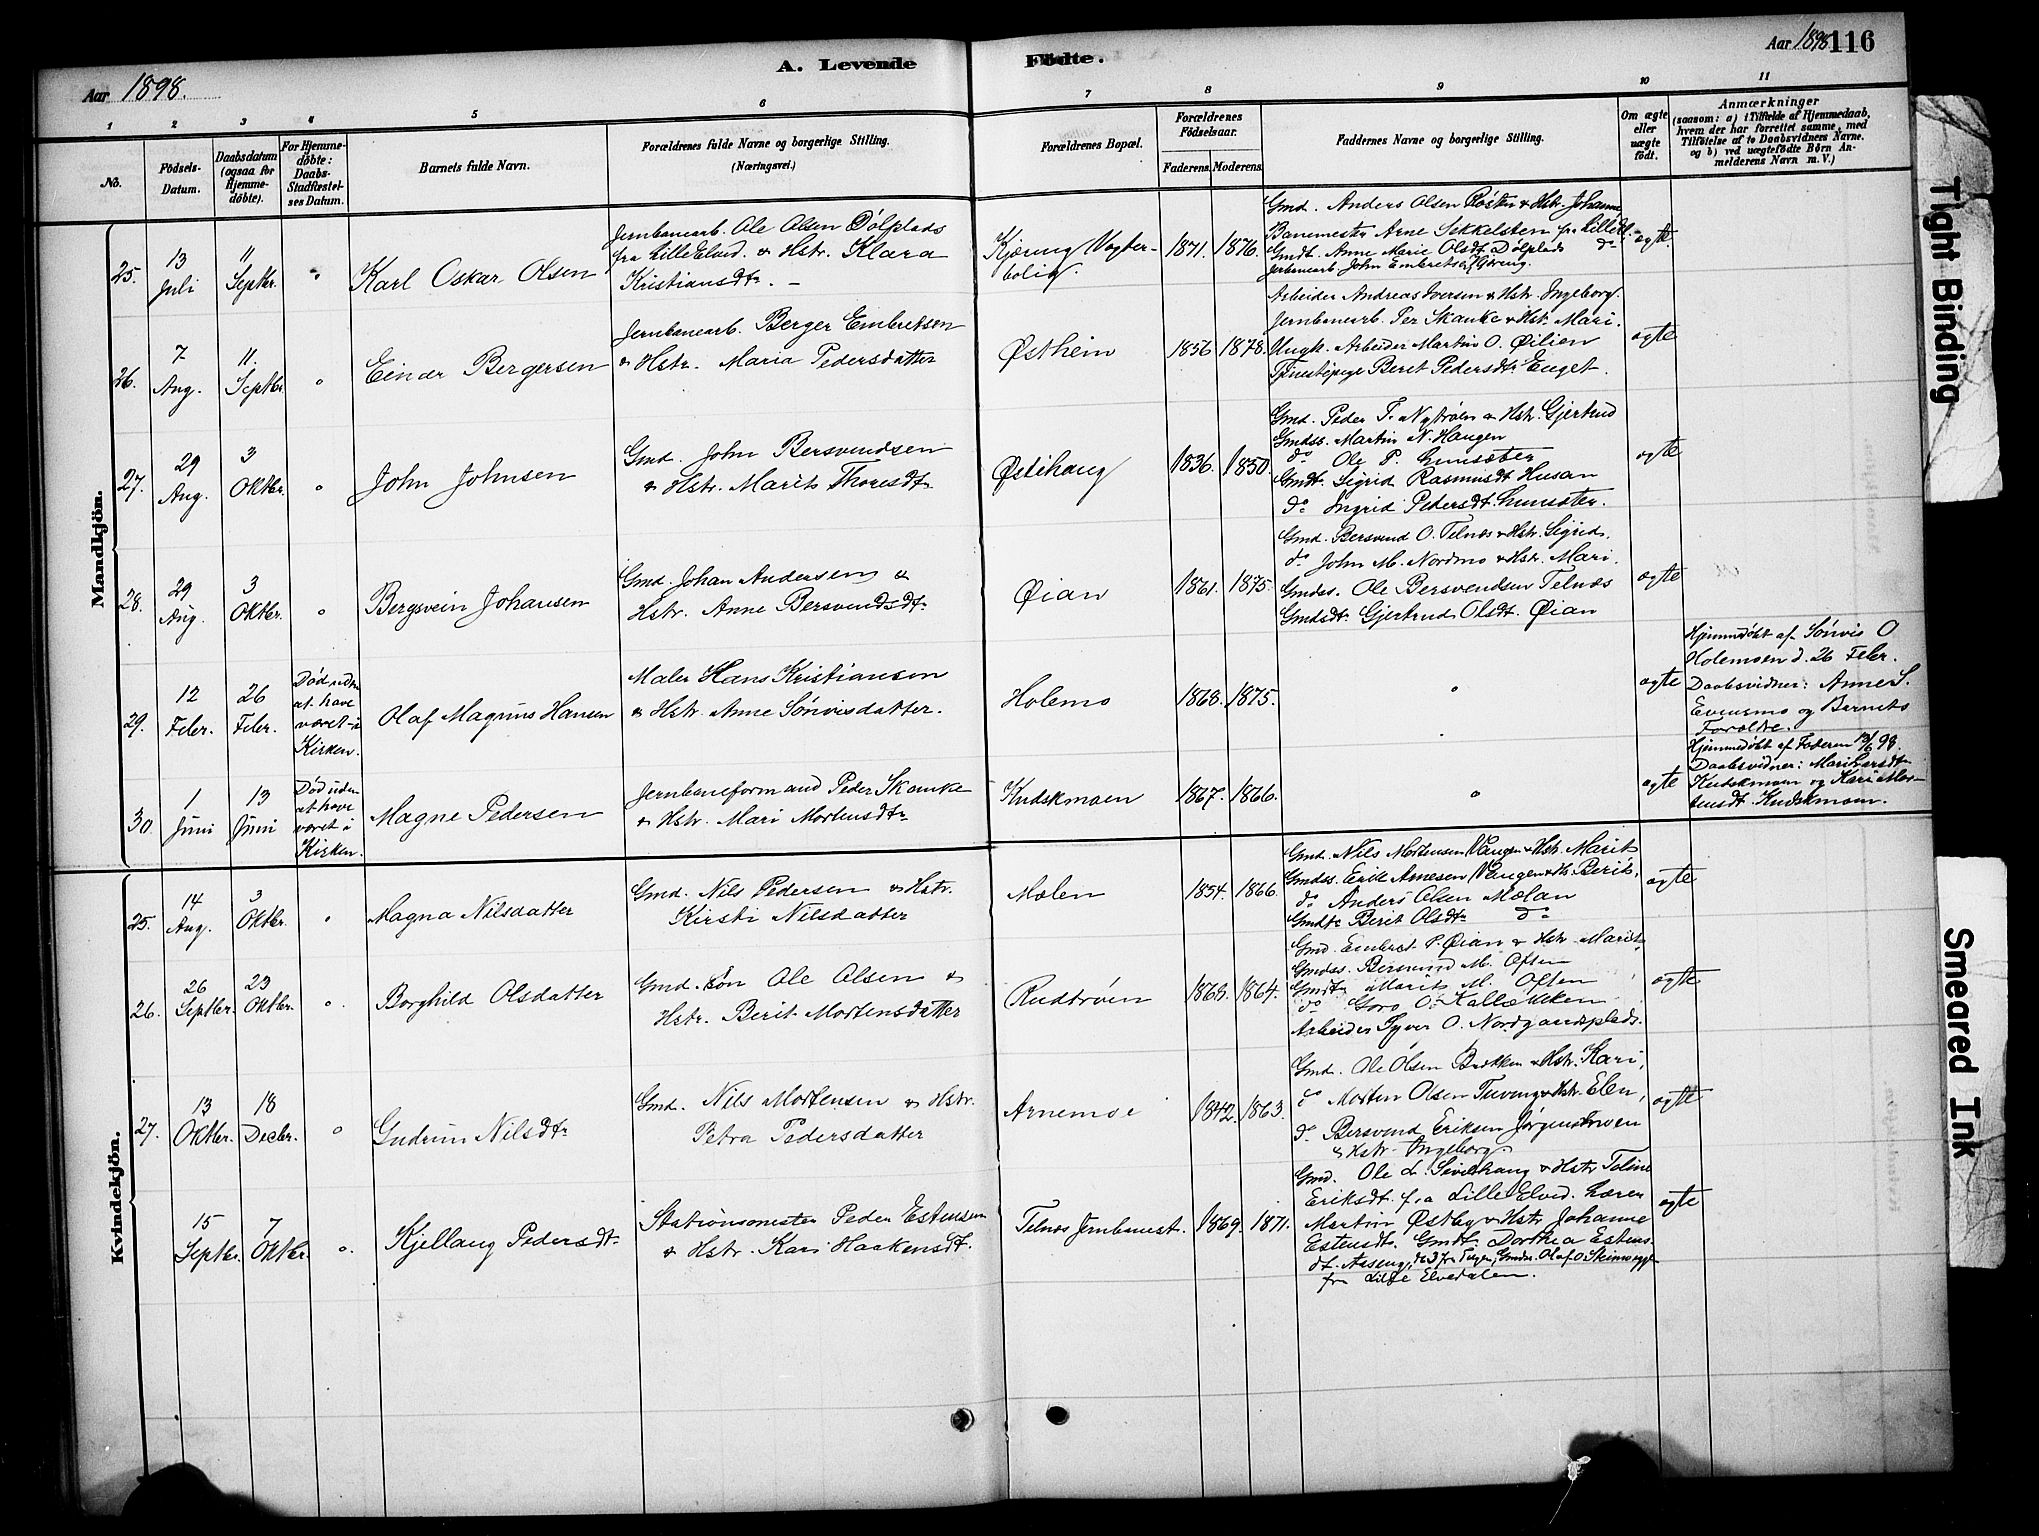 Aar 1898.
A. Levende Födte.
Aar 1898 116
1 2 3 4 5 6 7 8 9 10 11
No.
Födsels-
Datum.
Daabsdatum
(ogsaa for
Hjemme-
döbte).
For Hjemme-
döbte:
Daabs-
Stadfæstel-
ses Datum.
Barnets fulde Navn.
Forældrenes fulde Navne og borgerlige Stilling.
(Næringsvei.)
Forældrenes Bopæl.
Forældrenes
Födselsaar.
Faderens. Moderens.
Faddernes Navne og borgerlige Stilling.
Om ægte
eller
uægte
födt.
Anmærkninger
(saasom: a) i Tilfælde af Hjemmedaab,
hvem der har forrettet samme, med
Tilföielse af to Daabsvidners Navne.
og b) ved uægtefödte Börn An-
melderens Navn m. V.)
Mandkjön.
25.
13
Juli
11
Septbr.
"
Karl Oskar Olsen
Jernbanearb. Ole Olsen Dølplads
fra Lille Elved. & Hstr. Klara
Kristiansdtr. –
Kjærring Vogter-
bolig.
1871. 1876.
Gmd. Anders Olsen Røsten & Hstr. Johanne
Banemester Arne Sikkelsten fra Lille El.
Gmdt. Anne Marie Olsdt. Dølplads do
Jernbanearb. John Embretsen
ægte
26.
7
Aug.
11.
Septbr.
"
Einar Bergersen
Jernbanearb. Berger Embretsen
& Hstr. Maria Pedersdatter
Østheim
1856 1878.
Arbeider Andreas Iversen & Hstr. Ingeborg.
Jernbanearb. Per Skanke & Hstr. Mari.
Ungk. Arbeider Martin O. Øilien
Tjenestepige Beret Pedersdtr Enget.
ægte
27.
29
Aug.
3
Oktbr.
"
John Johnsen
Gmd. John Bersvendsen
& Hstr. Marit Thoresdtr
Østihaug
1836. 1850.
Gmd. Peder T. Nytrøen & Hstr. Gjertrud
Gmdss. Martin N. Haugen
do Ole P.
Gmdt. Sigrid Rasmusdt Husan
do Ingrid Pedersdt.
ægte
28.
29
Aug.
3
Oktbr.
"
Bergsvein Johansen
Gmd. Johan Andersen &
Hstr. Anne Bersvendsdtr
Øian
1861. 1875.
Gmd. Bersvend O. Telnæs & Hstr. Sigrid.
do John M. Nordmo & Hstr. Mari.
Gmdss. Ole Bersvendsen Telnæs
Gmdsdtr Gjertrud Olsdt. Øian
ægte
29.
12
Febr.
26
Febr.
Død uden
at have
været i
Kirken.
Olaf Magnus Hansen
Maler Hans Kristiansen
& Hstr. Anne Sønvisdatter.
Holemo
1868. 1875.
"
ægte
Hjemmedøbt af Sønvis O
Holemoen d. 26 Febr.
Daabsvidner: Anne S.
Evensmo og Barnets
Forældre.
30.
1
Juni
13
Juni
Død uden
at have
været i
Kirken.
Magne Pedersen
Jernbaneformand Peder Skanke
& Hstr. Mari Mortensdtr
Kudskmoen
1867. 1866.
"
ægte
Hjemmedøbt af Faderen 13/6 98.
Daabsvidner: Mari
Kudskmoen og Kari Mor-
tensdt. Kudskmoen.
Kvindekjön.
25.
14
Aug.
3
Oktbr.
"
Magna Nilsdatter
Gmd. Nils Pedersen & Hstr.
Kirsti Nilsdatter
Mælen
1854. 1866.
Gmd. Nils Mortensen Vangen & Hstr. Marit
Gmdss. Erik Arnesen Vangen & H. Berit,
do Anders Olsen Mælan
Gmdtr Berit Olsdtr do
ægte
26.
26
Septbr.
23
Oktbr.
"
Borghild Olsdatter
Gmd. søn Ole Olsen &
Hstr. Berit Mortensdatter
Rudtrøen
1868. 1864.
Gmd. Embret P. Øian & Hstr. Marit.
Gmdss. Bersvend M. Often
Gmdtr Marit M. Often
do Goro O. Kallbekken
Arbeider Syver O. Nordgaardsplads.
ægte
27.
13
Oktbr.
18
Decbr.
"
Gudrun Nilsdtr
Gmd. Nils Mortensen & Hstr.
Petra Pedersdatter
Arnemoe
1842. 1863.
Gmd. Ole Olsen Bækken & Hstr. Kari,
do Morten Olsen Tuveng & Hstr. Elen,
do Bersvend Eriksen Jørgensmoen
& Hstr. Ingeborg.
ægte
15
Septbr.
7
Oktbr.
"
Kjellaug Pedersdtr
Stationsmester Peder Estensen
& Hstr. Kari Haakensdt.
Telnæs Jernbanest.
1869. 1871.
Gmd. Ole L. Sivilhaug & Hstr Toline
Eriksdt. fra Lille Elved. Lærer
Martin Østby & Hstr Johanne
Estensdt. Gmdt. Dorthea Estens-
dt. Aaseng,
fra Lille Elvedalen.
ægte
Tight Binding
Smeared Ink